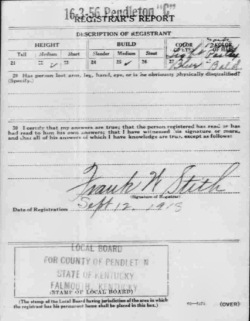 16-2-56 Pendleton "C"
REGISTRAR'S REPORT
DESCRIPTION OF REGISTRANT
HEIGHT BUILD COLOR OF
Tall Medium Short Slender Medium Stout
21 22 ✓ 23 24 25 ✓ 26 Blue Bald
29 Has person lost arm, leg, hand, eye, or is he obviously physically disqualified?
(Specify.)
30 I certify that my answers are true; that the person registered has read or has
had read to him his own answers; that I have witnessed his signature or mark,
and that all of his answers of which I have knowledge are true, except as follows:
Frank W Stith
(Signature of Registrar)
Date of Registration Sept 12, 1918
LOCAL BOARD
FOR COUNTY OF PENDLETON
STATE OF KENTUCKY
FALMOUTH, KENTUCKY
(STAMP OF LOCAL BOARD)
(The stamp of the Local Board having jurisdiction of the area in which
the registrant has his permanent home shall be placed in this box.)
(OVER)